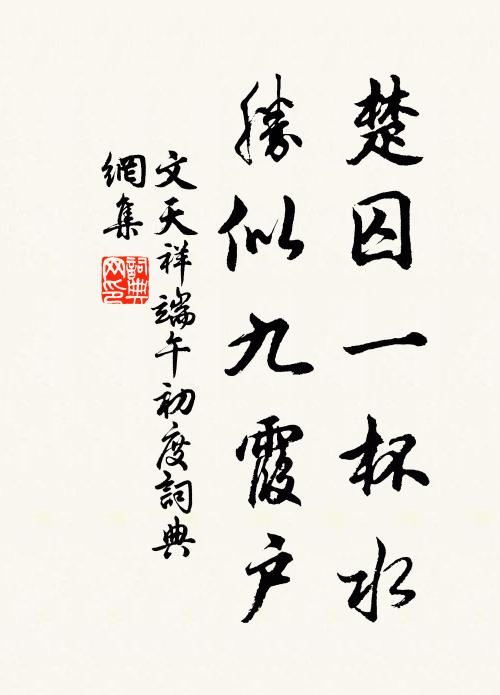 楚囚一杯水
勝似九霞户
文天祥端午初度詞典
網集
詞典
网印